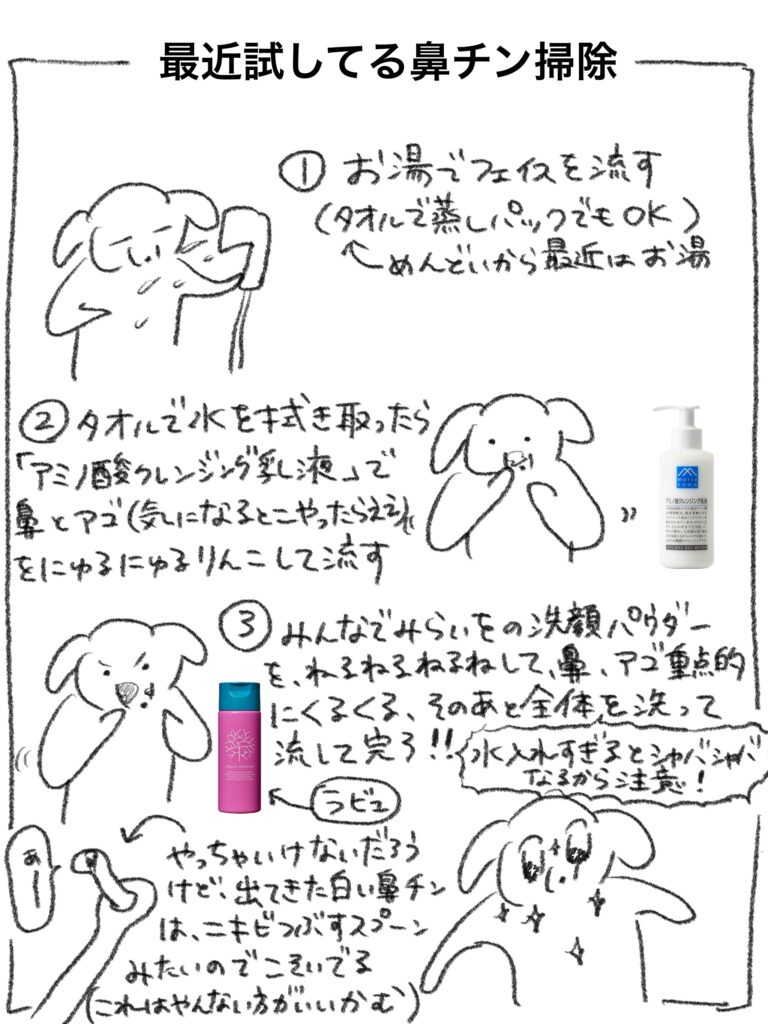 最近試してる鼻チン掃除
① お湯でフェイスを流す
(タオルで蒸しパックでもOK)
めんどいから最近はお湯
② タオルで水を拭き取ったら
「アミノ酸クレンジング乳液」で
鼻とアゴ(気になるとこやったらええ)
をにゅるにゅるりんこして流す
matsu
yama
アミノ酸クレンジング乳液
③ みんなでみらいをの洗顔パウダー
を、ねるねるねるねして、鼻、アゴ重点的
にくるくる、そのあと全体を洗って
流して完了!!
水入れすぎるとシャバシャバ
なるから注意!
ラビュ
あー
やっちゃいけないだろう
けど、出てきた白い鼻チン
は、ニキビつぶすスプーン
みたいのでこそいでる
(これはやんない方がいいかむ)